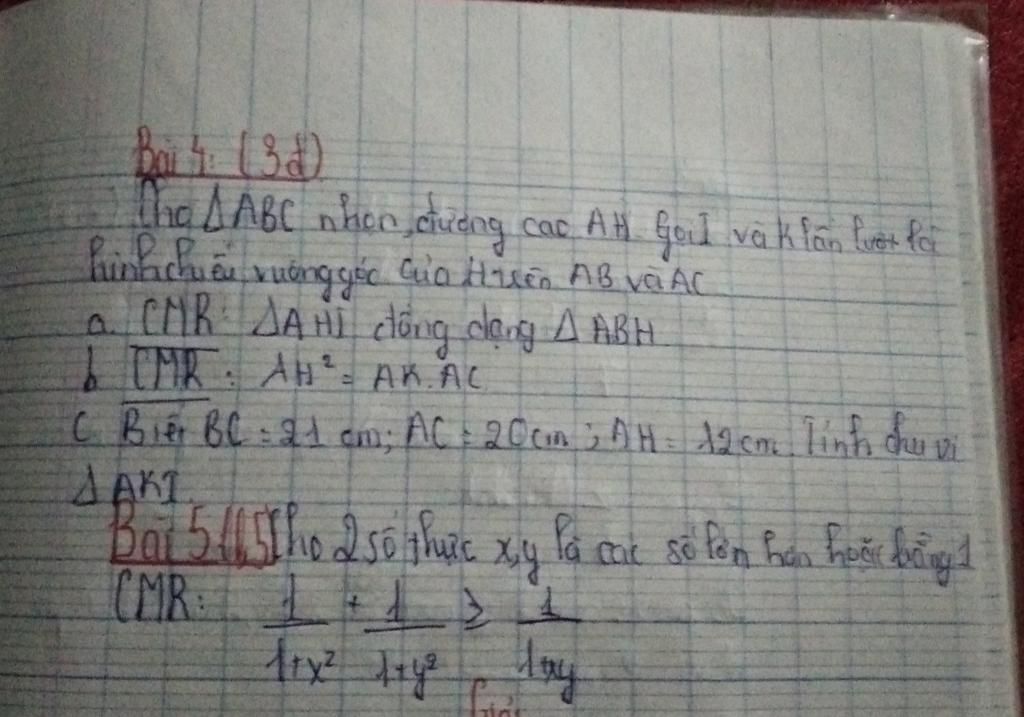 Bài 4: (3đ)
Cho ΔABC nhọn, đường cao AH. Gọi I và K lần lượt là
hình chiếu vuông góc của H trên AB và AC
a. CMR: ΔAHI đồng dạng ΔABH
b CMR: AH² = AK.AC
C Biết BC = 21 cm; AC = 20cm; AH = 12cm. Tính chu vi
ΔAKI
Bài 5 (1,5) Cho 2 số thực x,y là các số lớn hơn hoặc bằng 1
CMR: 1/(1+x²) + 1/(1+y²) ≥ 1/(1+xy)
Giải